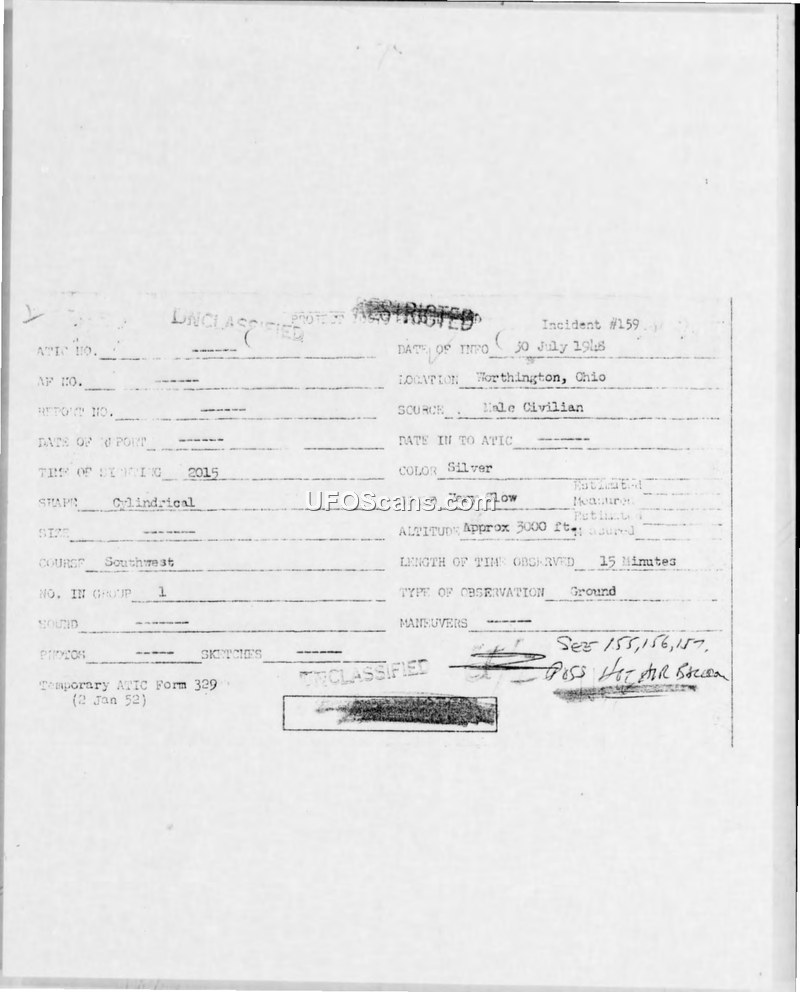 UNCLASSIFIED RESTRICTED
Incident #159
ATIC NO. ------ DATE OF INFO 30 July 1948
AF NO. ------ LOCATION Worthington, Ohio
REPORT NO. ------ SOURCE Male Civilian
DATE OF REPORT ------ DATE IN TO ATIC ------
TIME OF SIGHTING 2015 COLOR Silver
SHAPE Cylindrical Very Slow Estimated
Measured
SIZE ------ ALTITUDE Approx 3000 ft. Estimated
Measured
COURSE Southwest LENGTH OF TIME OBSERVED 15 Minutes
NO. IN GROUP 1 TYPE OF OBSERVATION Ground
SOUND ------ MANEUVERS ------
PHOTOS ----- SKETCHES ------
See 155,156,157.
Poss Hot Air Balloon
Temporary ATIC Form 329
(2 Jan 52)
UNCLASSIFIED
UFOScans.com